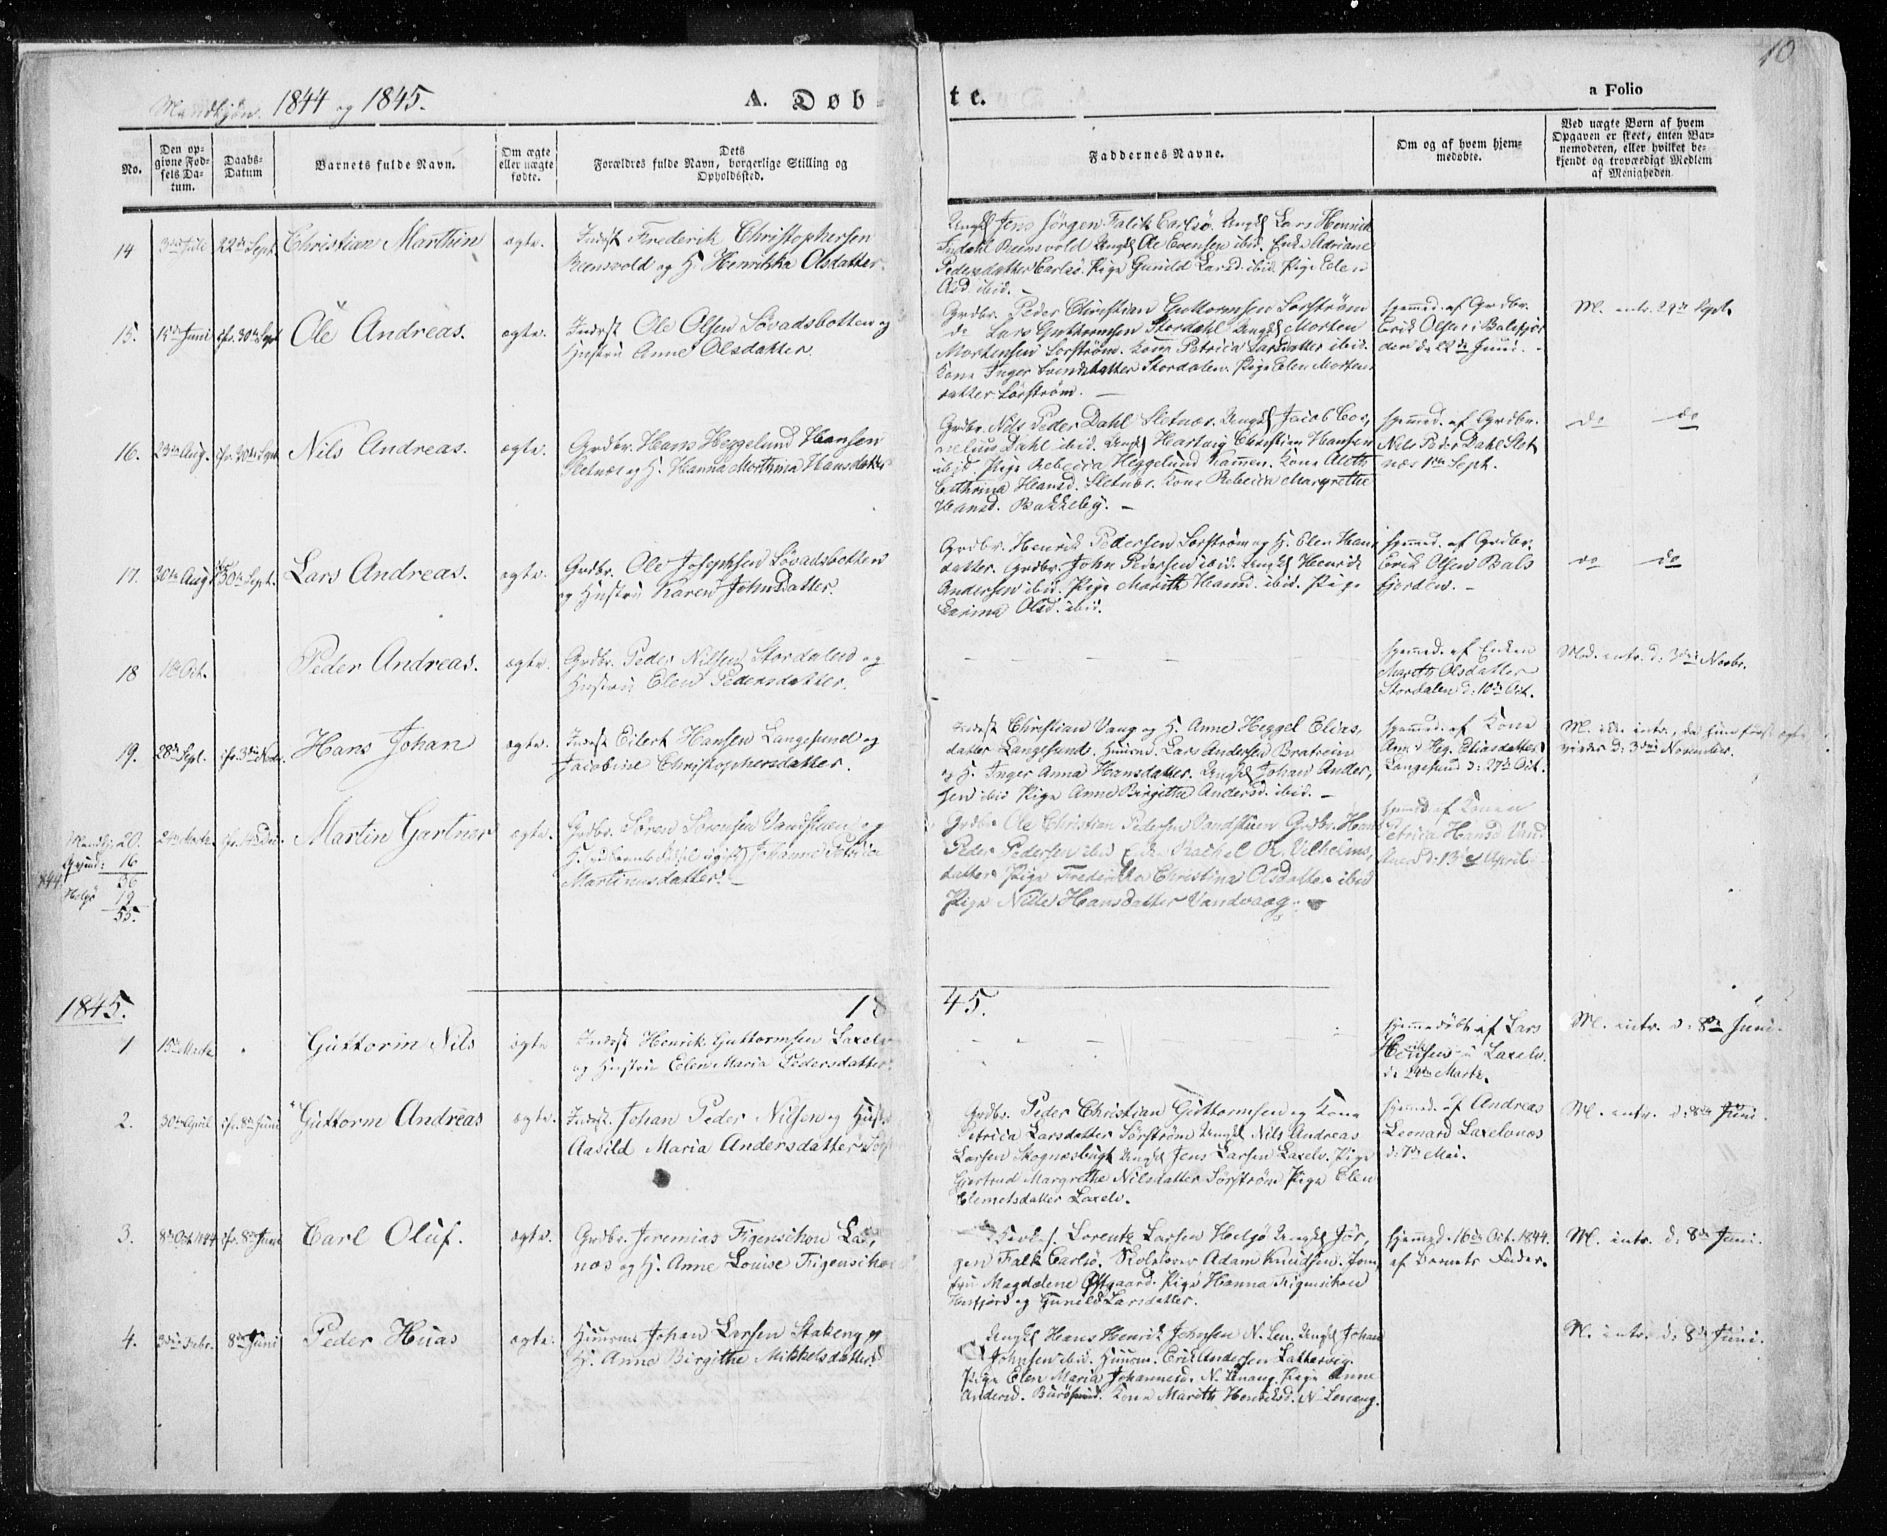 10
Mandkjøn. 1844 og 1845.
A. Døbte.
a Folio
No.
Den op-
givne Fød-
sels Da-
tum.
Daabs-
Datum
Barnets fulde Navn.
Om ægte
eller uægte
fødte.
Dets
Forældres fulde Navn, borgerlige Stilling og
Opholdssted.
Faddernes Navne.
Om og af hvem hjem-
medøbte.
Ved uægte Børn af hvem
Opgaven er skeet, enten Bar-
nemoderen, eller hvilket be-
kjendt og troværdigt Medlem
af Menigheden.
14
3die Juli
22de Sept.
Christian Marthin
ægte.
Indst Frederik Christophersen
Reensvold og H. Henrikka Olsdatter.
Ungk Jens Jørgen Falck Carlsø. Ungk Lars Henrik
Indahl Reensvold Ungk Ole Evensen ibid. Enke Adriane
Pedersdatter Carlsø. Pige Gunild Larsd. ibid. Pige Elen
Olsd ibid. –
15.
15de Juni
cfr. 30te Sept
Ole Andreas.
ægte.
Indst Ole Olsen Søvadsbotten og
Hustru Anne Olsdatter.
Grdbr. Peder Christian Guttormsen Sørstrøm
do Lars Guttormsen Stordahl Ungk Morten
Mortensen Sørstrøm. Kone Petrica Larsdatter ibid.
Kone Inger Svendsdatter Stordalen. Pige Elen Mortens
datter Sørstrøm. –
hjemmed. af Grdbr.
Erik Olsen i Balsfjor
den d. 22de Juni. –
M. intr. 29de Sept.
16.
23de Aug.
cfr. 30te Sept
Nils Andreas.
ægte.
Grdbr. Hans Heggelund Hansen
Sletnæs og H. Hanna Morthina Hansdatter
Grdbr. Nils Peder Dahl Sletnæs. Ungk Jacob Cor,
nelius Dahl ibid. Ungk Hartvig Christian Hansen
ibid. Pige Rebecca Heggelund Kamen. Kone Aleth
Cathrina Hansd. Sletnæs. Kone Rebecca Margrethe
Hansd. Bakkeby. –
hjemmed. af Grdbr.
Nils Peder Dahl Slet
næs 1ste Sept.
do do
17.
30te Aug
30te Sept.
Lars Andreas.
ægte.
Grdbr. Ole Josephsen Søvadsbotten
og Hustru Karen Johnsdatter.
Grdbr. Henrik Pedersen Sørstrøm og H. Elen Hans
datter. Grdbr. John Pedersen ibid. Ungk Henrik
Andersen ibid. Pige Marith Hansd. ibid. Pige
Carina Olsd. ibid.
hjemmed. af Grdbr.
Erik Olsen Bals
fjorden. –
do do
18
1ste Oct.
Peder Andreas.
ægte.
Grdbr. Peder Nilsen Stordalen og
Hustru Elen Pedersdatter.
hjemmed. af Enken
Mareth Olsdatter
Stordalen d: 10de Oct.
Mod. intr. d: 3die Novbr.
19.
28de Sept.
cfr. 3die Nov.
Hans Johan
ægte.
Indst Eilert Hansen Langesund og
Jacobine Christophersdatter.
Indst Christian Vang og H. Anne Heggel Elias
datter Langesund. Huusmd. Lars Andersen Bratrein
og H. Inger Anna Hansdatter. Ungk Johan Ander,
sen ibid Pige Anne Birgitha Andersd. ibid. –
hjemmed. af Kone
Anne Heg. Eliasdatter
Langesund d: 27de Oct.
M. ikke intr., da hun først ægte
vies d: 3die November.
Mandkj: 20.
Qvind: 16
1844. 36
Helgø 19
55.
Martin Gartner
ægte.
Grdbr. Søren Sørensen Vandstuen og
Martinusdatter. –
Grdbr Ole Christian Pedersen Vandstuen Grdbr. Hans
Peder Pedersen ibid Enke Rachel R. Vilhelms,
datter Pige Fredrikke Christina Olsdatter ibid
Pige Nille Hansdatter Vandvaag. –
hjemmed af Konen
Petrica Hansd Van
d: 13de April
1845.
1845.
1
15de Marts
Guttorm Nils
ægte
Indst Henrik Guttormsen Laxelv
og Hustru Elen Maria Pedersdatter.
hjemmedøbt af Lars
Hensen i Laxelv.
d. 24de Marts.
M. intr. d: 8de Juni.
2.
30te April
cfr. 8de Juni
Guttorm Andreas
ægte.
Indst. Johan Peder Nilsen og Hust
Aasild Maria Andersdatter
Grdbr. Peder Christian Guttormsen og Kone
Petrica Larsdatter Sørstrøm Ungk Nils Andreas
Larsen Skognæsbugt Ungk Jens Larsen Laxelv. Pige
Gjertrud Margrethe Nilsdatter Sørstrøm Pige Elen
Clemetsdatter Laxelv.
hjemmed. af Andreas
Leonard Laxelvnæs
d: 1ste Mai.
M. intr. d: 8de Juni.
3.
8de Oct. 1844
cfr. 8de Juni
Carl Oluf.
ægte.
Grdbr. Jeremias Figenschou
næs og H. Anne Louise Figenschou
Lorentz Larsen Helgø Ungk Jør,
gen Falk Carlsø. Skolelærer Adam Knudsen. Jom
fru Magdalene Østgaard. Pige Hanna Figenschou
og Gunild Larsdatter.
hjemmed. 16de Oct. 1844.
af Barnets Fader.
M. intr. d: 8de Juni.
4.
3die Febr.
8de Juni
Peder Huas
ægte.
Huusmd Johan Larsen Stakeng og
H. Anne Birgithe Mikkelsdatter
Ungk Hans Henrik Johnsen N. Len. Ungk Johan
Johnsen ibid. Huusm. Erik Andersen Lattervig.
Pige Elen Maria Johannesd. N. Lenang. Pige Anne
Andersd. Burøsund. Kone Marith Henriksd. N. Lenang.
M. intr. d: 8de Juni.